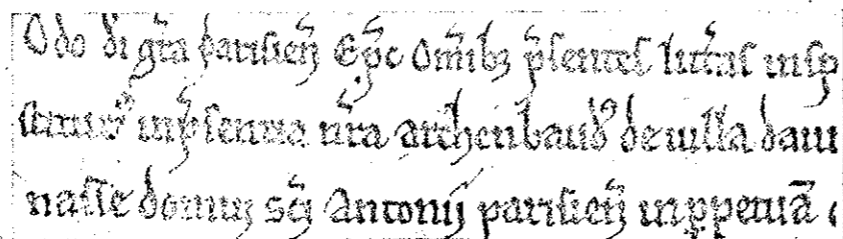 Odo di gr̃a parisien̄ Ep̃c Omĩbꝫ p̃sentes litt̃as insp
in p̃sentia nr̃a archenbaud de uilla dau
nasse domui sc̄i Antonij parisien̄ in ꝑpetuā